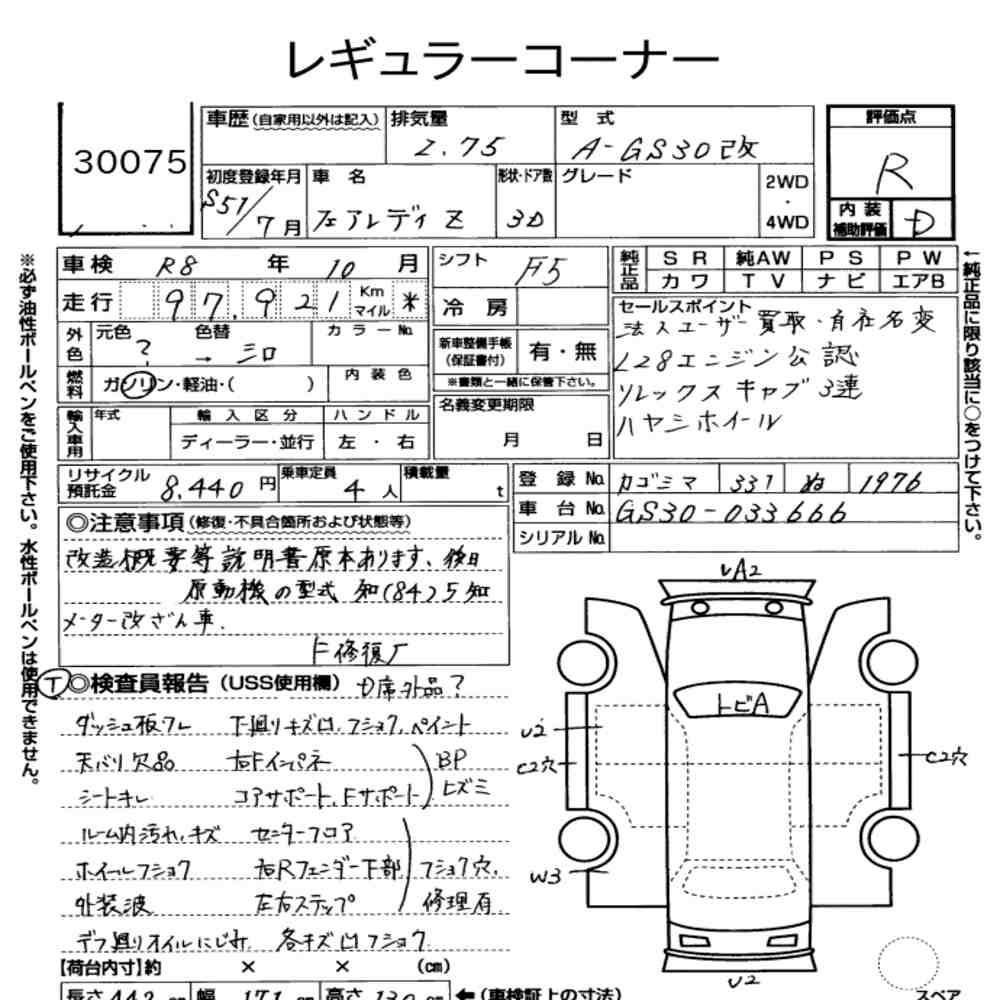 レギュラーコーナー
30075
車歴(自家用以外は記入)
排気量 2.75
型式 A-GS30改
評価点 R
初度登録年月 S51/7月
車名 フェアレディZ
形状・ドア数 3D
グレード
2WD
・
4WD
内装補助評価 D
車検 R8年 10月
走行 97,921 Km マイル ※
シフト F5
冷房
純正品
SR 純AW PS PW
カワ TV ナビ エアB
外色 元色 ? 色替 → 三ロ カラーNo.
燃料 ガソリン・軽油・( ) 内装色
新車整備手帳(保証書付) 有・無
※書類と一緒に保管下さい。
セールスポイント
法人ユーザー買取・自社名変
L28エンジン公認
ソレックスキャブ3連
ハヤシホイール
輸入車用 年式 輸入区分 ハンドル
ディーラー・並行 左・右
名義変更期限
月 日
リサイクル預託金 8,440円
乗車定員 4人
積載量 t
登録No. カゴシマ 331 ぬ 1976
車台No. GS30-033666
シリアルNo.
◎注意事項(修復・不具合箇所および状態等)
改造概要等説明書原本あります、後日
原動機の型式 知(84)5知
メーター改ざん車.
F修復歴
T ◎検査員報告(USS使用欄) 座席外品?
ダッシュ板ワレ 下廻りキズ凹,フショク,ペイント
天バリ欠品 右Fインパネ
シートキレ コアサポート,Fサポート
BP
ヒズミ
ルーム内汚れ,キズ センターフロア
ホイールフショク 右Rフェンダー下部 フショク穴,
外装波 左右ステップ 修理有
デフ廻りオイルにじみ 各キズ凹フショク
【荷台内寸】約 × × (cm)
長さ 442 cm 幅 171 cm 高さ 130 cm ←(車検証上の寸法)
※必ず油性ボールペンをご使用下さい。水性ボールペンは使用できません。
←純正品に限り該当に○をつけて下さい。
UA2
トビA
U2
C2穴
C2穴
W3
U2
スペア